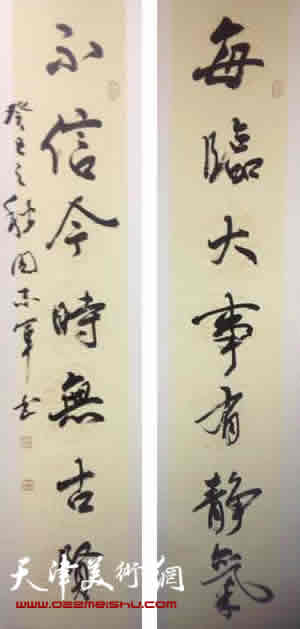 每臨大事有静氣
不信今時無古賢
癸巳之秋周志軍书
天津美術網
www.022meishu.com